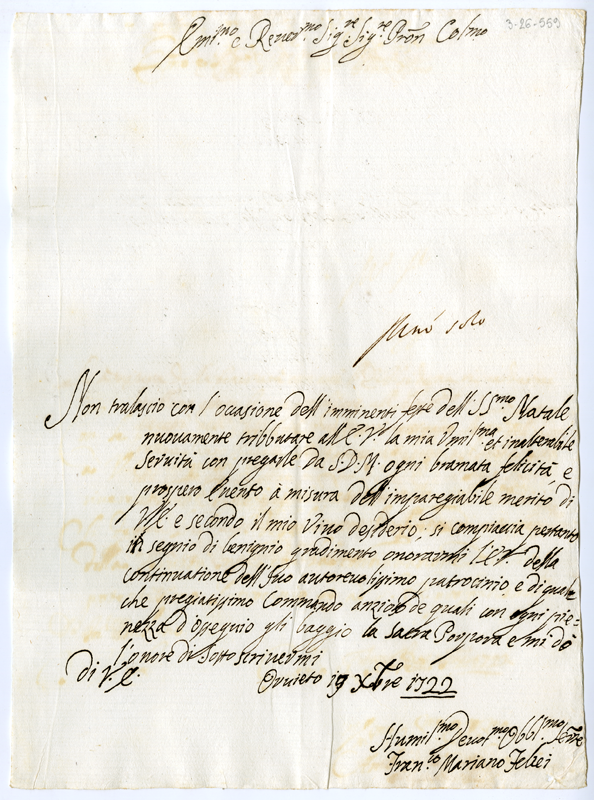 3-26-559
Emi.mo e Rever.mo Sig.re Sig.re Pron Colmo
solo
Non tralascio con l'occasione dell'imminenti feste dell SS.mo Natale
nuovamente tribbutare all E.V. la mia Umil.ma et inalterabile
servità con pregarle da S.D.M. ogni bramata felicità, e
prospero evento à misura dell'impareggiabile merito di
V.E. e secondo il mio vivo desiderio. si compiaccia pertanto
in segnio di benignio gradimento onorarmi l'E.V. della
continuatione dell suo autorevolissimo patrocinio e di qual
che pregiatissimo Commando anzioso de quali con ogni pie=
nezza d'ossequio gli baggio la Sacra Porpora e mi dò
l'onore di sottoscrivermi
di V.E.
Orvieto 19 Xbre 1722
Humil.mo Devot.mo Obbl.mo Serre
Fran.co Mariano Febei